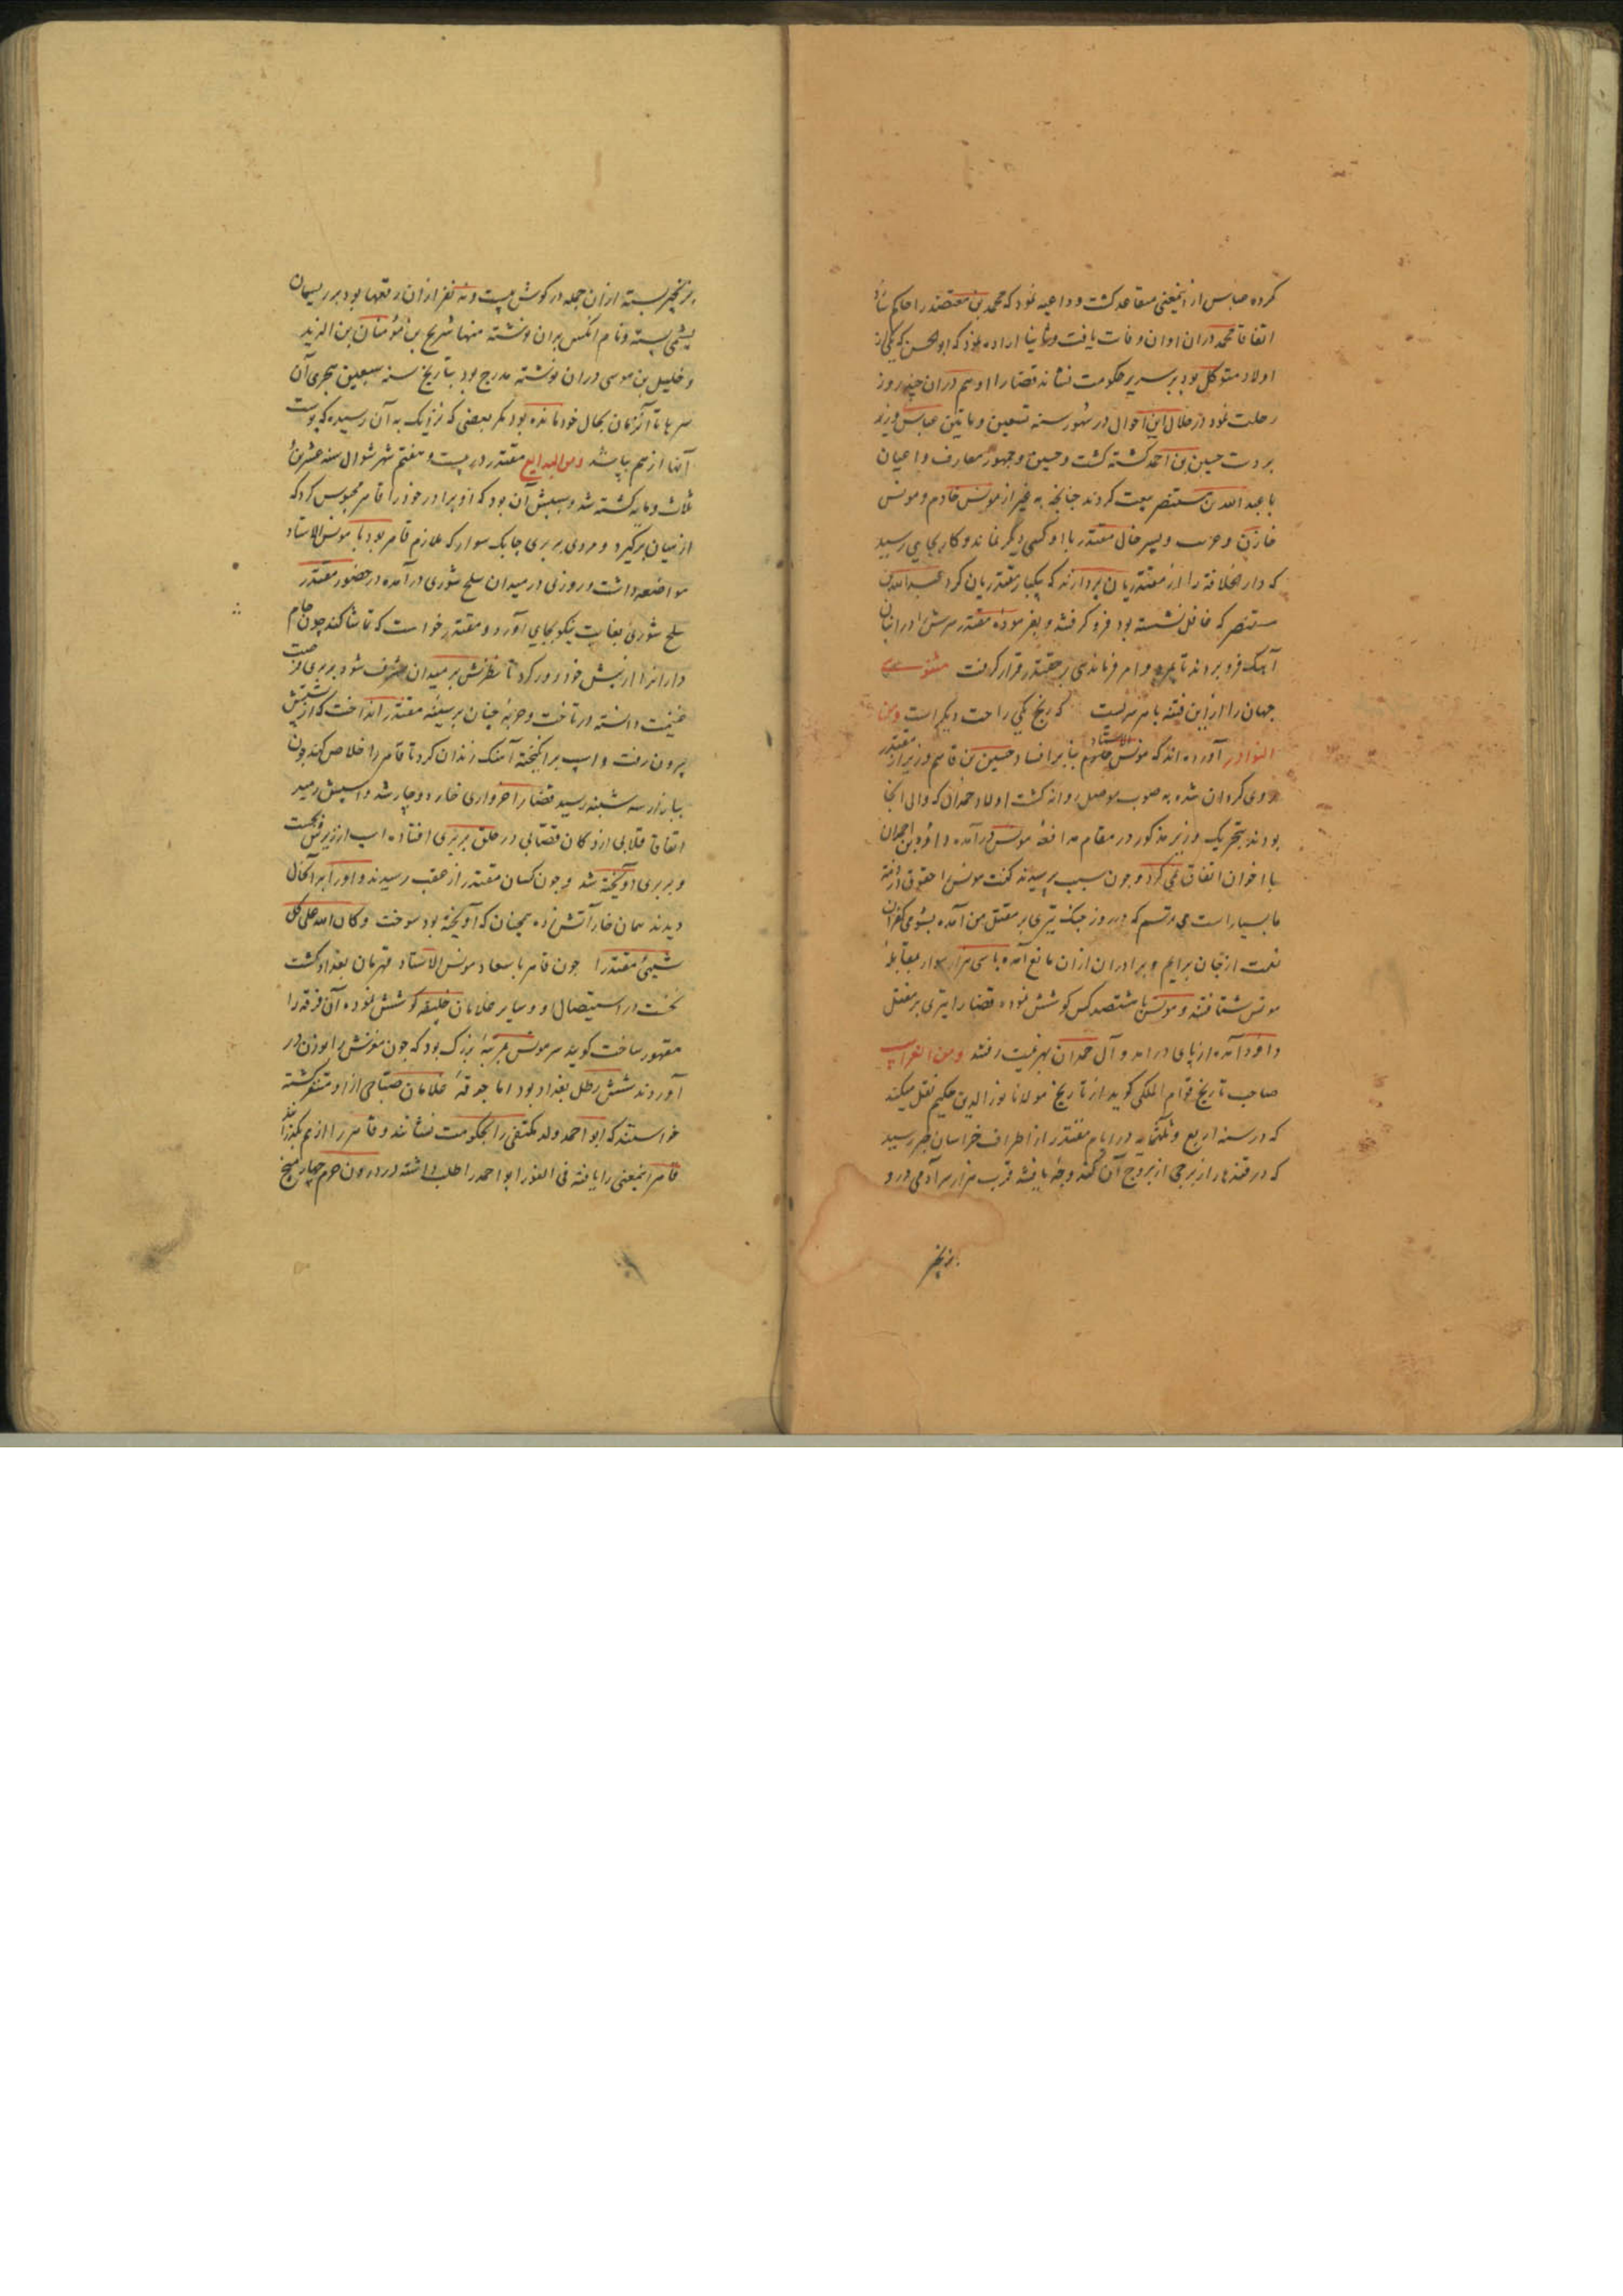 کرده عباس از اینمعنی متقاعد کشت و داعیه نمود که محمد بن معتضد را حاکم سازد
اتفاقا محمد دران اوان وفات یافت و ثانیا اراده نمود که ابو الحسن که یکی از
اولاد متوکل بود بر سریر حکومت نشاند قضا را او هم دران چند روز
رحلت نمود در خلال این احوال در شهور سنه تسعین و مایتین عباس وزیر
بر دست حسین بن احمد کشته کشت و حسین و جمهور معارف و اعیان
با عبد الله بن مستنصر بیعت کردند چنانچه به غیر از مونس خادم و مونس
خازن و عرب و پسر خال مقتدر با او کسی دیگر نماند و کار بجایی رسید
که دار الخلافة را از مقتدریان بپردازند که یکبار مقتدریان کرد عبد الله بن
مستنصر که غافل نشسته بود فرو کرفته و بفرموده مقتدر سرش را در انبان
آهک فرو بردند تا بمرد و امر فرماندهی بر مقتدر قرار کرفت مثنوی
جهان را از این فتنه با هر سریست که رنج یکی راحت دیگر است ومن
النوادر آورده اند که مونس الاستاد بنا بر افساد حسین بن قاسم وزیر از مقتدر
روی کردان شده به صوب موصل روانه کشت اولاد حمدان که والی انجا
بودند بتحریک وزیر مذکور در مقام مدافعه مونس درآمده داود بن حمدان
با اخوان اتفاق نمی کرد و چون سبب پرسیدند کفت مونس را حقوق در ذمه
ما بسیار است می ترسم که در روز جنک تیری بر مقتل من آمده بشومی کفران
نعمت از جان برایم و برادران ازان مانع آمده با سی هزار سوار بمقابله
مونس شتافتند و مونس با هشتصد کس کوشش نموده قضا را تیری بر مقتل
داود آمده از پای درامد و آل حمدان بهزیمت رفتند ومن الغرایب
صاحب تاریخ قوام الملکی کوید از تاریخ مولانا نور الدین حکیم نقل میکند
که در سنه اربع و ثلثمایه در ایام مقتدر از اطراف خراسان خبر رسید
که در قندهار از برجی از بروج آن کنده وجه یافتند قرب هزار سر آدمی در و
بزنجیر
بزنجیر بسته ازان جمله در کوش بیست و نه نفر ازان رقعها بود بر ریسمان
پشمی بسته و نام انکس بران نوشته منها شریح بن مؤمنان بن الزید
و خلیل بن موسی دران نوشته مدرج بود بتاریخ سنه سبعین هجری آن
سرها تا آنزمان بحال خود مانده بود مکر بعضی که نزدیک به آن رسیده که پوست
آنها از هم بپاشد ومن البدایع مقتدر در بیست و هفتم شهر شوال سنه عشرین
ثلث و مایه کشته شد و سببش آن بود که او برادر خود را قاهر محبوس کرد که
از میان برکیرد و مردی بربری چابک سوار که ملازم قاهر بود با مونس الاستاد
مواضعه داشت و روزی در میدان سلح شوری درآمده در حضور مقتدر
سلح شوری بغایت نیکو بجای آورد و مقتدر خواست که تماشا کند چون تمام
داراندا از پیش خود دور کرد تا نظرش بر میدان مشرف شود بربری فرصت
غنیمت دانسته در تاخت و حربه چنان بر سینه مقتدر انداخت که از پشتش
بیرون رفت و اسپ برانکیخته آهنک زندان کرد تا قاهر را خلاص کند چون
ببازار سه شنبه رسید قضا را خرواری خار دوچار شد و اسپش رمید
اتفاقا قلابی از دکان قصابی در حلق بربری افتاده اسپ از زیرش بجست
و بربری آویخته شد و چون کسان مقتدر از عقب رسیدند و او را بر آنحال
دیدند همان خار آتش زده همچنان که آویخته بود سوخت و کان الله علی کل
شیئ مقتدرا چون قاهر باسعاد مونس الاستاد قهرمان بغداد کشت
نخست در استیصال او و سایر غلامان خلیفه کوشش نموده آن فرقه را
مقهور ساخت کویند سر مونس بمرتبه بزرک بود که چون مغزش را بوزن در
آوردند شش رطل بغداد بود اما جوقه غلامان صباحی از او متنفر کشته
خواستند که ابو احمد ولد مکتفی را بحکومت نشانند و قاهر را از هم بکذرانند
قاهر اینمعنی را یافته فی الفور ابو احمد را طلب داشته در درون حرم چهار میخ